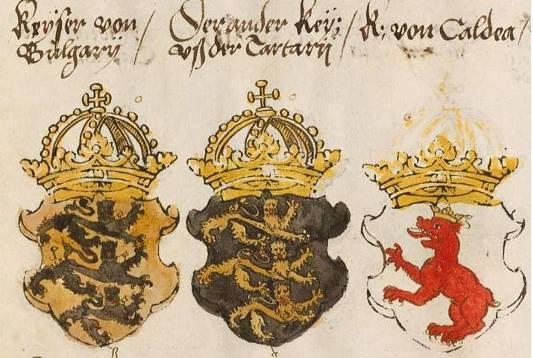 Keyser von
Bulgarÿ /
Der ander Key:
vß der Tartarÿ /
K: von Caldea /